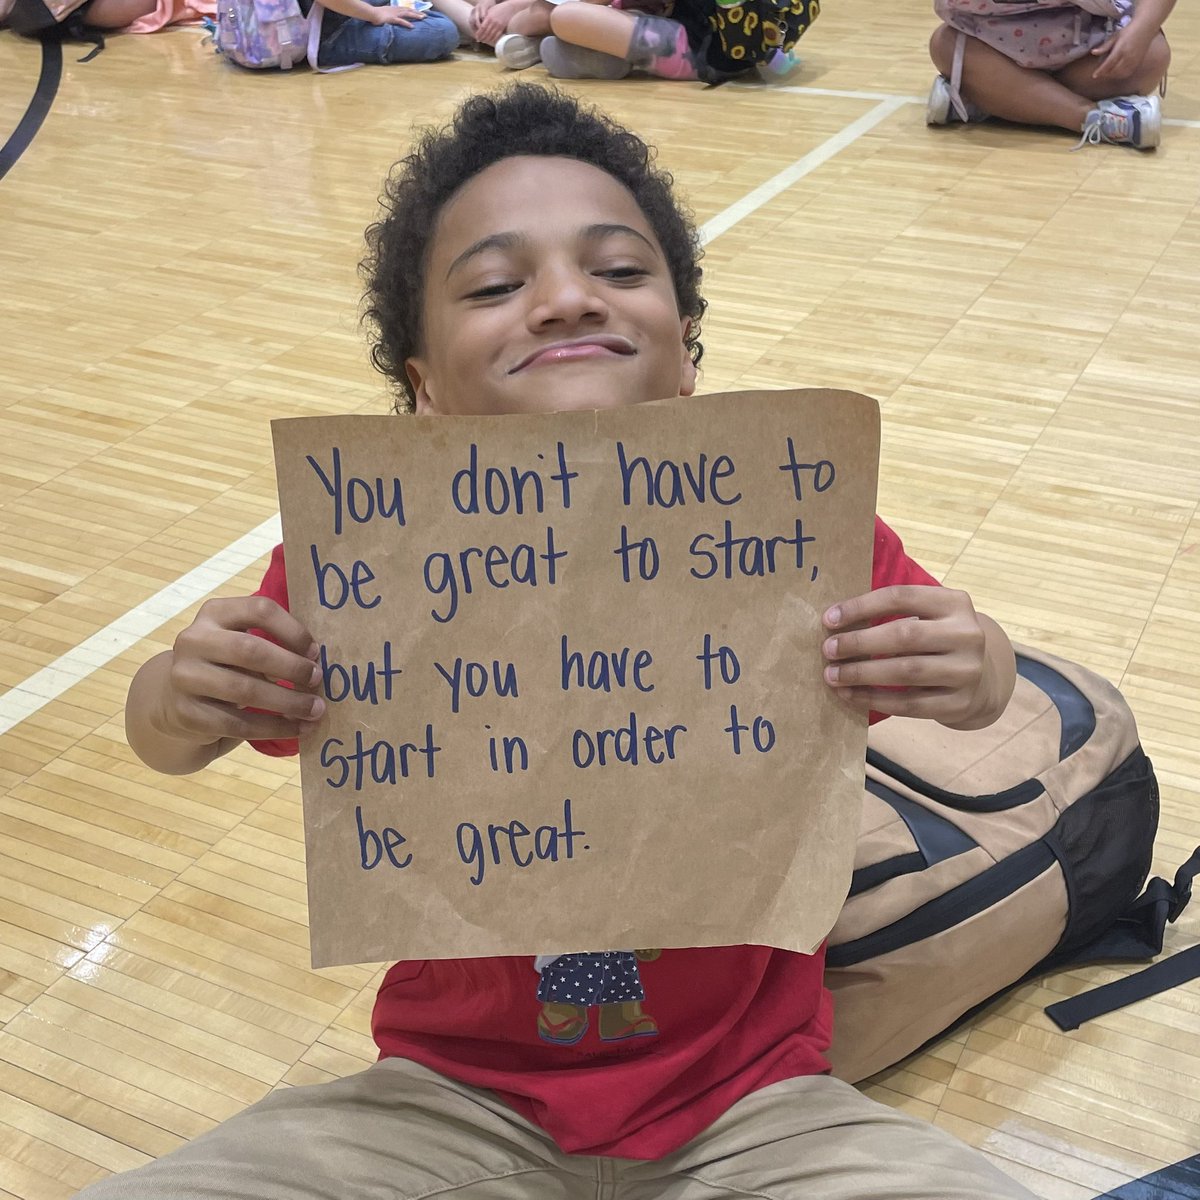 You don't have to
be great to start,
but you have to
start in order to
be great.